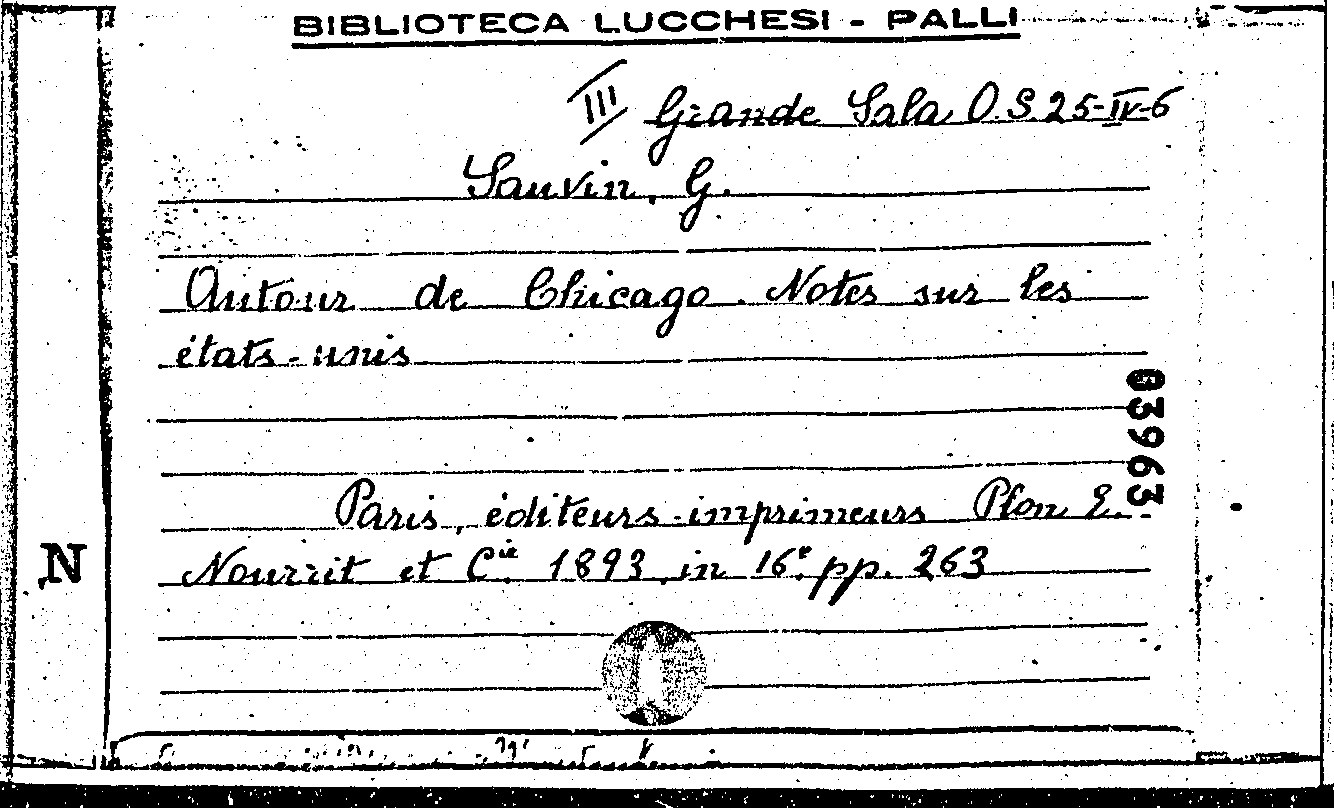 BIBLIOTECA LUCCHESI - PALLI
III Grande Sala O.S. 25-IV-6
Sauvin, G.
Autour de Chicago. Notes sur les
états-unis
03963
Paris, éditeurs-imprimeurs Plon E.
Nourrit et C.ie 1893 in 16° pp. 263
N